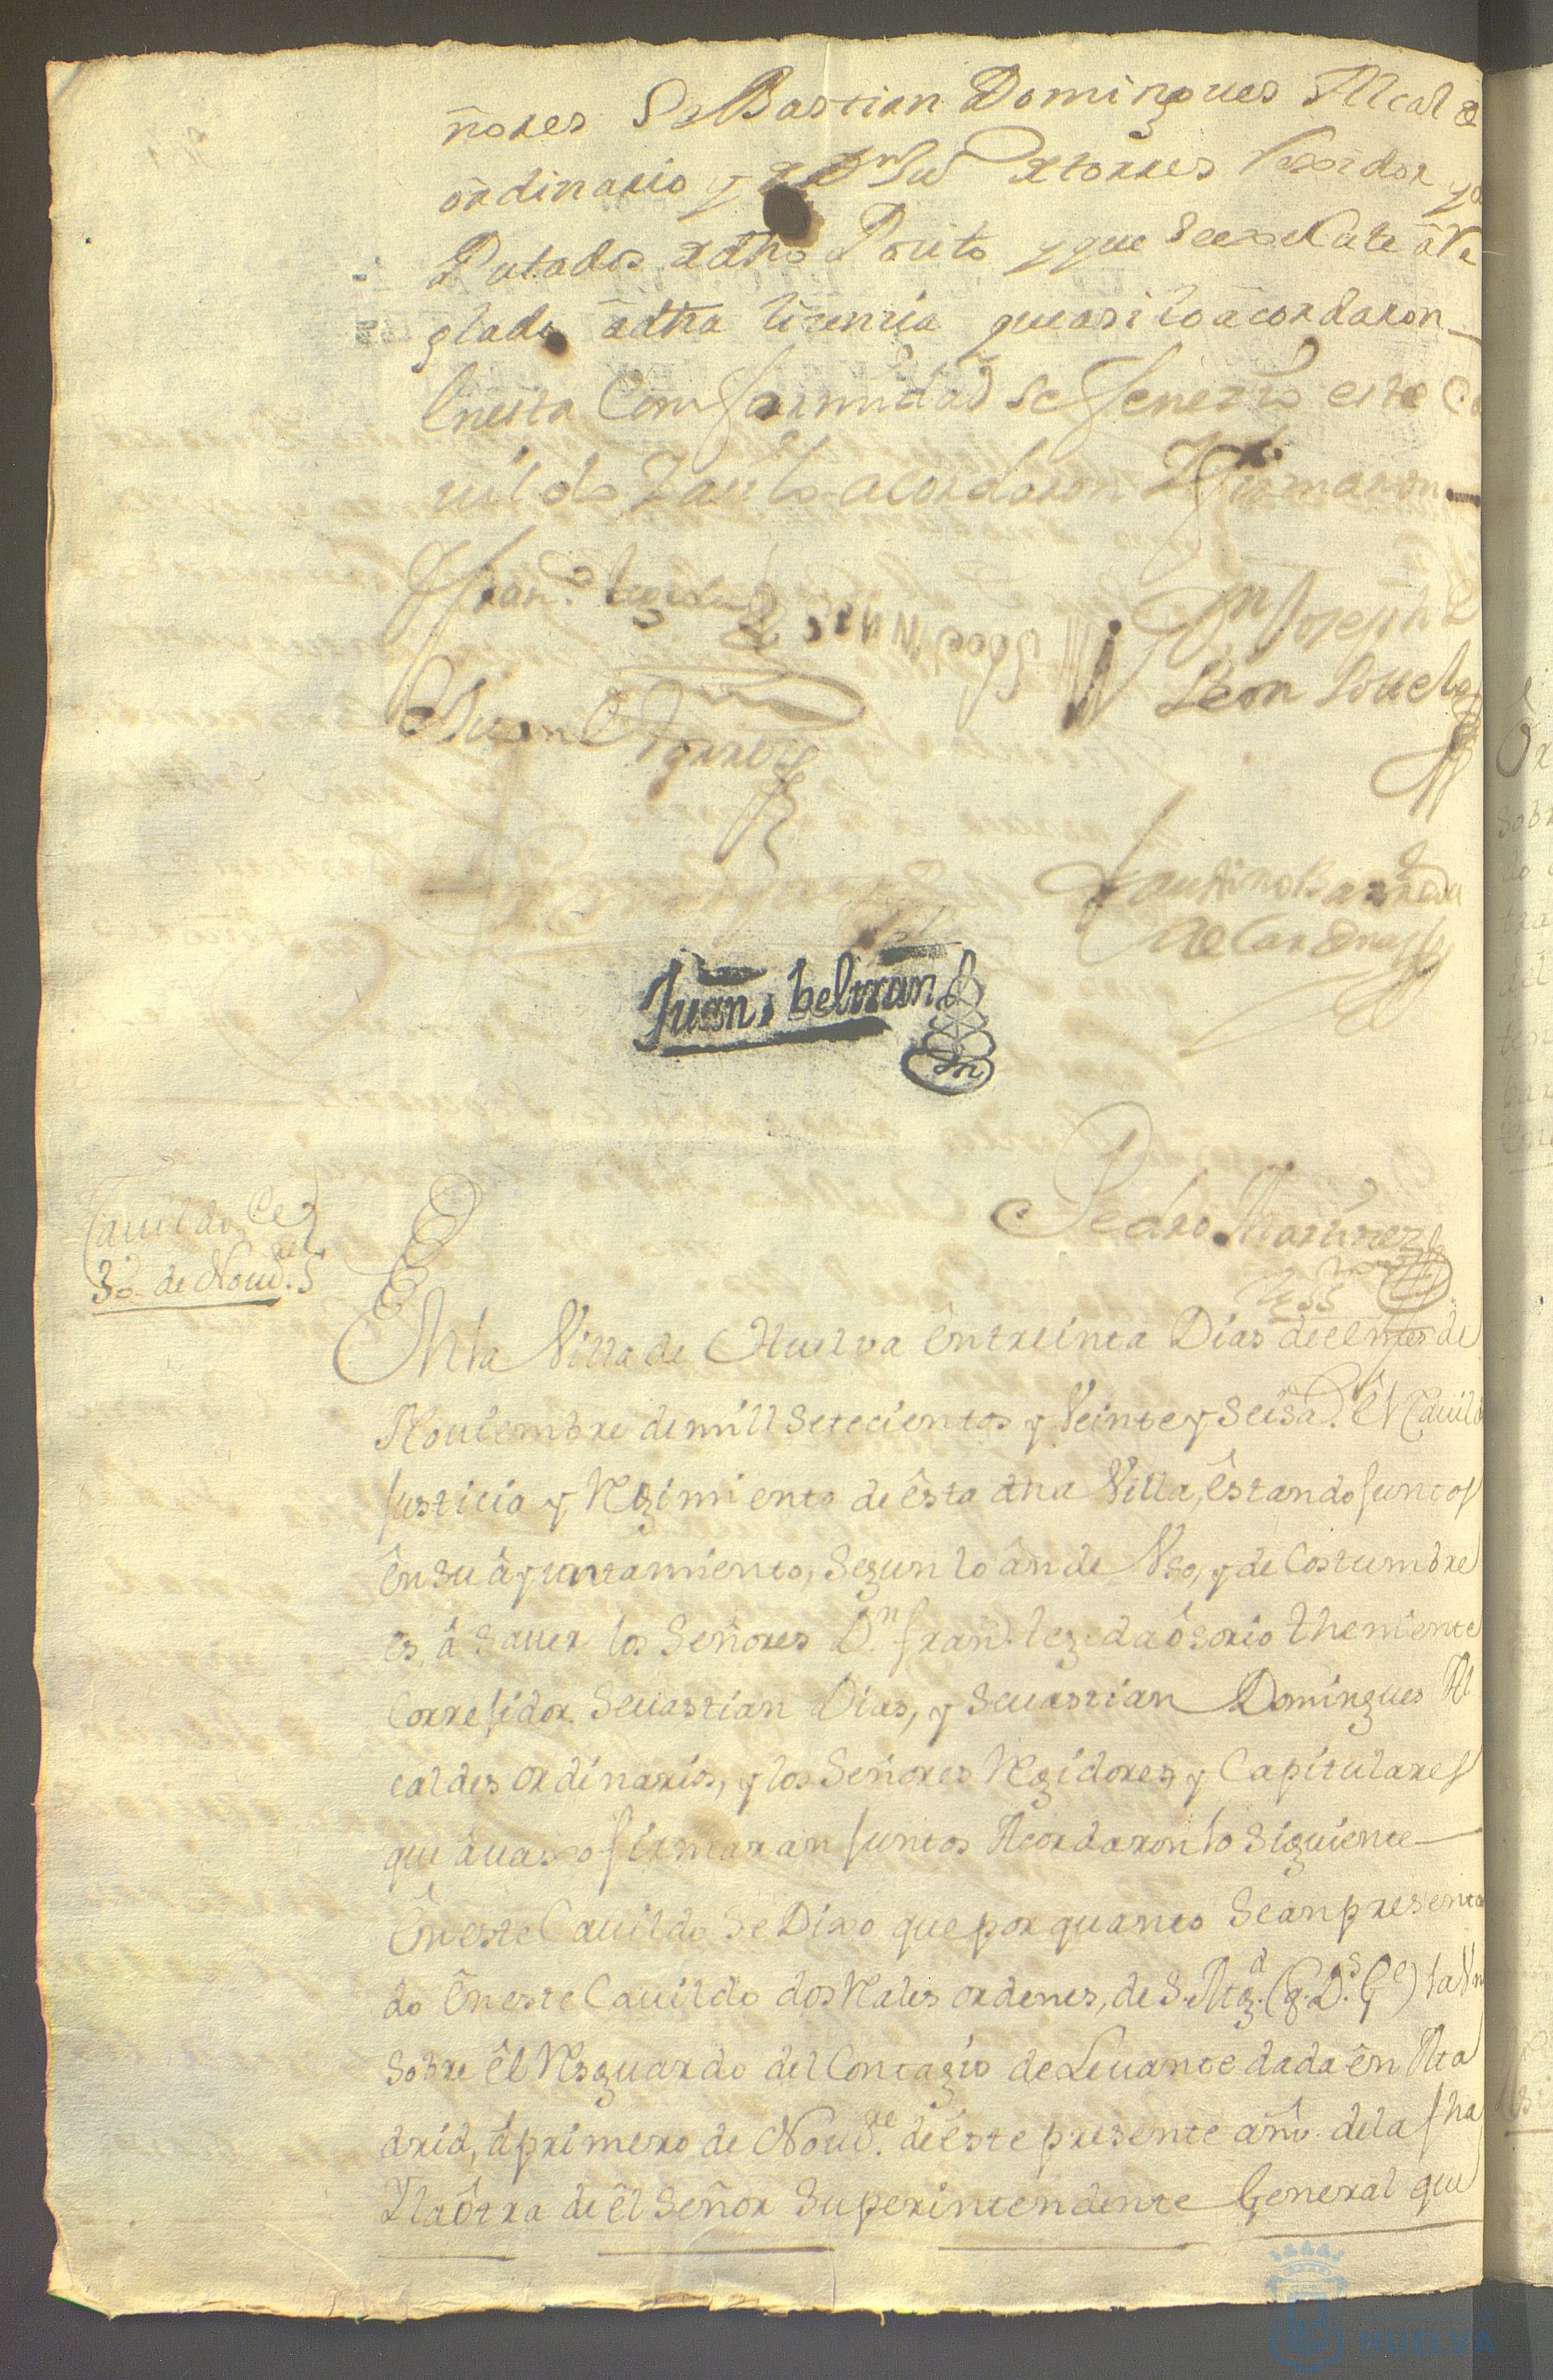 ñores SeBastian Domingues Alcalde
ordinario y Torres Rexidor y
Putados de dho Posito y que se execute arre
glado a dha lisensia que asi lo acordaron
en esta Comformidad se fenezio este Ca
uildo Y asi lo acordaron Y firmaron
Fran.co tegeda
Dn Joseph de
Leon
Juan
Faustino Barreda
de Cardenas
Juan, beltran
Pedro Martinez
Cauildo de
30 de Nou.re
En la Villa de Huelva en treinta Dias de el mes de
Nouiembre de mill setecientos y Veinte y seis a.s el Cauildo
Justicia y Regimiento de esta dha Villa, estando juntos
en su ayuntamiento, segun lo an de Vso, y de Costumbre
es, a sauer los Señores D.n fran.co tegeda osorio theniente
Corregidor Seuastian Dias, y Seuastian Domingues Al
caldes ordinarios, y los Señores Regidores y Capitulares
que auaxo firmaran juntos Acordaron lo siguiente
En este Cauildo se Dixo que por quanto se an presenta
do en este Cauildo dos Rales ordenes, de S. Mag.d (q. D.s G.e) la Vna
sobre el Resguardo del Contagio de Leuante dada en Ma
drid, a primero de Nou.re de este presente año de la fha
Y la otra de el Señor Superintendente General que
HUELVA